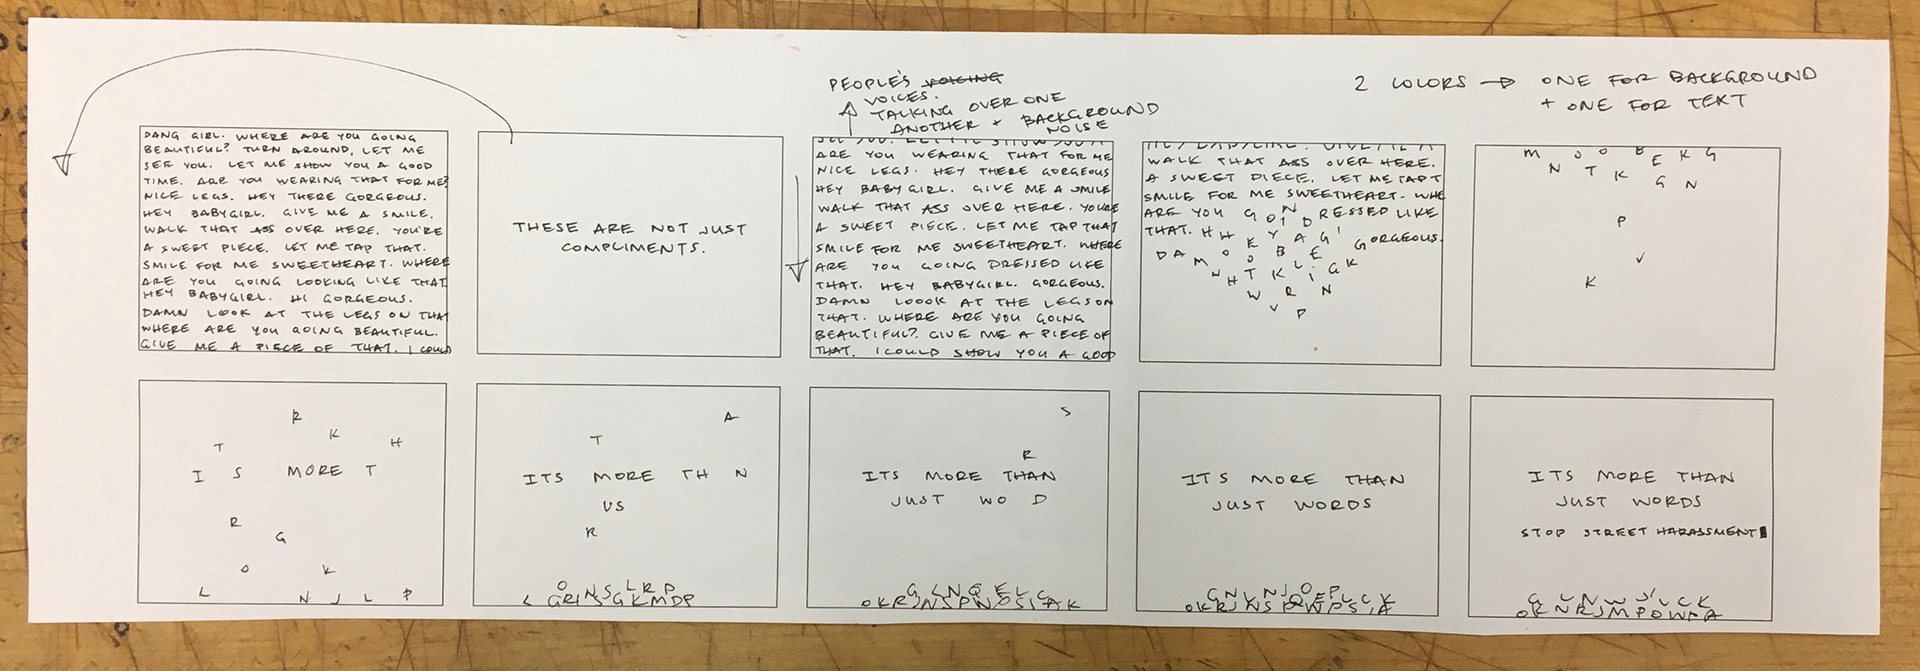 PEOPLE'S VOICING
VOICES.
TALKING OVER ONE
ANOTHER + BACKGROUND
NOISE
2 COLORS → ONE FOR BACKGROUND
+ ONE FOR TEXT
DANG GIRL. WHERE ARE YOU GOING
BEAUTIFUL? TURN AROUND, LET ME
SEE YOU. LET ME SHOW YOU A GOOD
TIME. ARE YOU WEARING THAT FOR ME?
NICE LEGS. HEY THERE GORGEOUS.
HEY BABYGIRL. GIVE ME A SMILE.
WALK THAT ASS OVER HERE. YOU'RE
A SWEET PIECE. LET ME TAP THAT.
SMILE FOR ME SWEETHEART. WHERE
ARE YOU GOING LOOKING LIKE THAT
HEY BABYGIRL. HI GORGEOUS.
DAMN LOOK AT THE LEGS ON THAT
WHERE ARE YOU GOING BEAUTIFUL.
GIVE ME A PIECE OF THAT. I COULD
THESE ARE NOT JUST
COMPLIMENTS.
SEE YOU. LET ME SHOW YOU A
ARE YOU WEARING THAT FOR ME
NICE LEGS. HEY THERE GORGEOUS
HEY BABYGIRL. GIVE ME A SMILE
WALK THAT ASS OVER HERE. YOU'RE
A SWEET PIECE. LET ME TAP THAT
SMILE FOR ME SWEETHEART. WHERE
ARE YOU GOING DRESSED LIKE
THAT. HEY BABYGIRL. GORGEOUS.
DAMN LOOOK AT THE LEGS ON
THAT. WHERE ARE YOU GOING
BEAUTIFUL? GIVE ME A PIECE OF
THAT. I COULD SHOW YOU A GOOD
HEY BABYGIRL. GIVE ME A
WALK THAT ASS OVER HERE.
A SWEET PIECE. LET ME TAP T
SMILE FOR ME SWEETHEART. WHE
ARE YOU G O I N D RESSED LIKE
THAT. H H E Y A G I GORGEOUS.
D A M O O B L E
N H T K L I G K
W R N
V P
M O O B E K G
N T K G N
P
V
K
R
T K H
I S MORE T
R
G
O K
L N J L P
A
T
ITS MORE TH N
US
R
O N S L R P
L G R I N S G K M D P
S
R
ITS MORE THAN
JUST WO D
G L N Q E L C
O K R J N S P N O S I A K
ITS MORE THAN
JUST WORDS
G N L N J O E P L C K
O K R J N S P W P S I A
ITS MORE THAN
JUST WORDS
STOP STREET HARASSMENT
G L N W J L C K
O K N R J M P O W P A